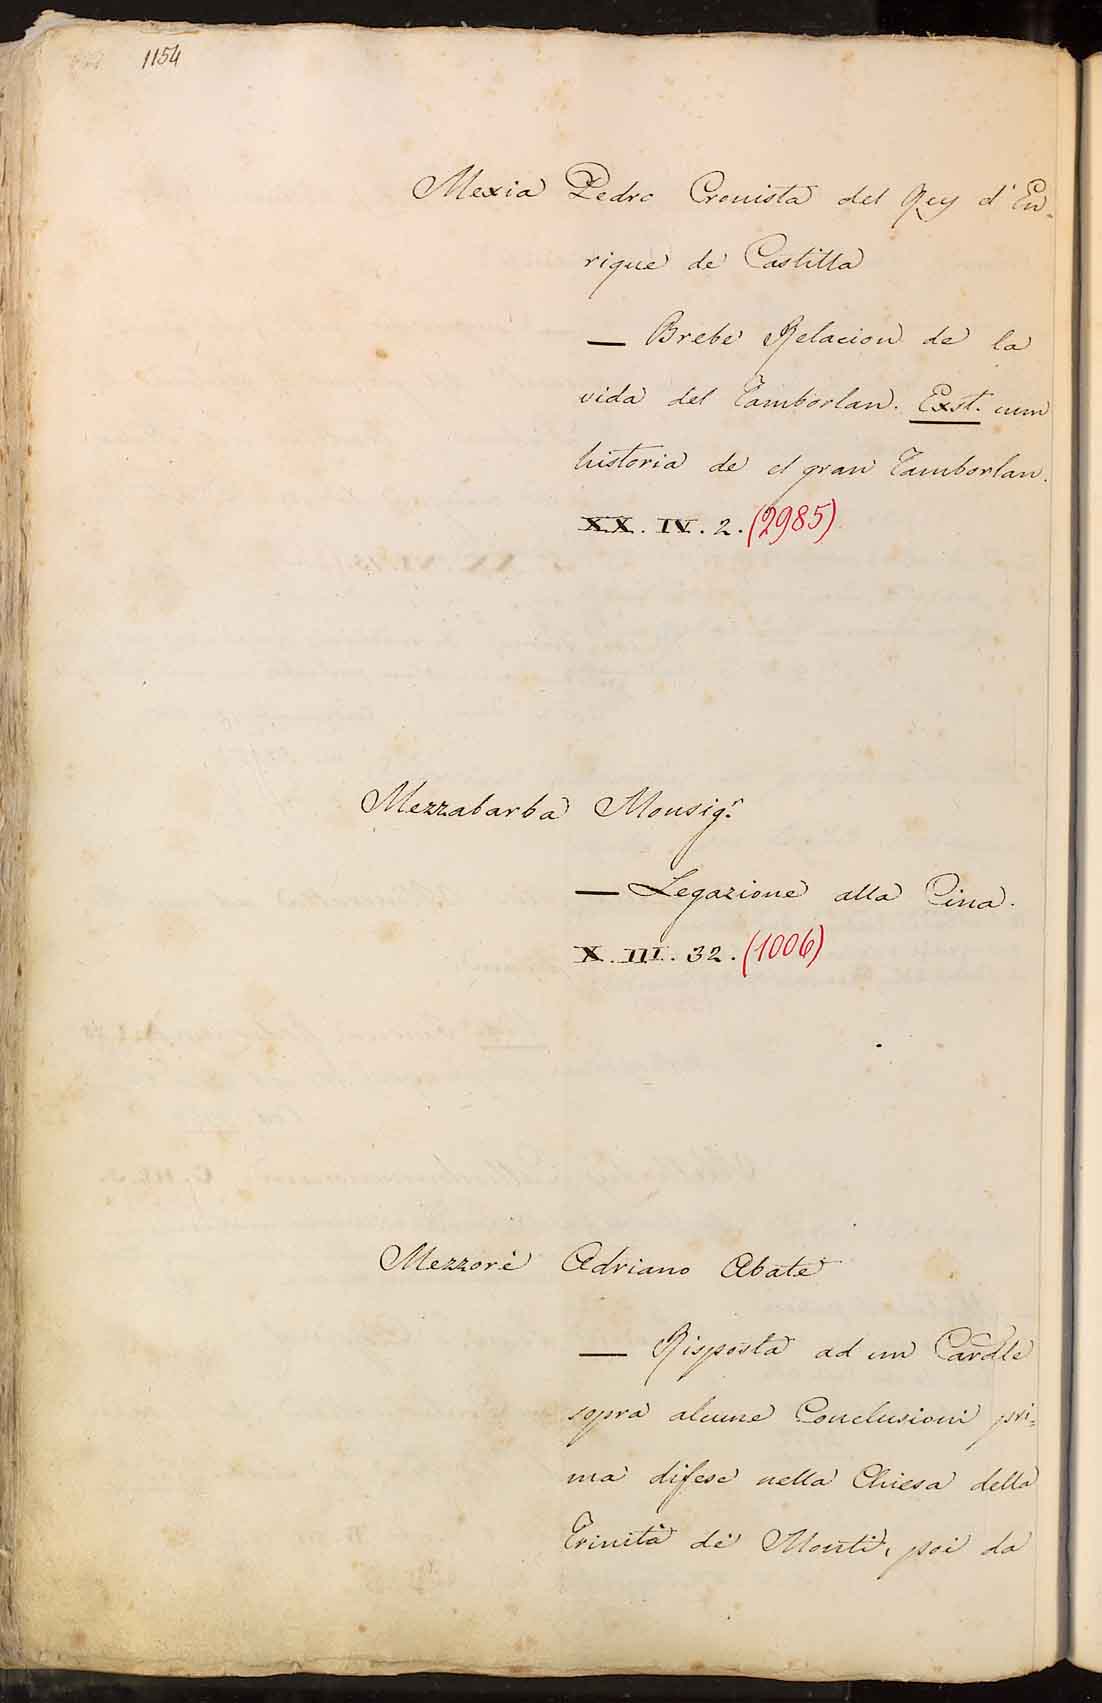 1154
Mexia Pedro Cronista del Rey d'En-
rique de Castilla
— Brebe Relacion de la
vida del Tamborlan. Exst. cum
historia de el gran Tamborlan.
XX. IV. 2. (2985)
Mezzabarba Monsigr.
— Legazione alla Cina.
X. III. 32. (1006)
Mezzorè Adriano Abate
— Risposta ad un Cardle
sopra alcune Conclusioni pri=
ma difese nella Chiesa della
Trinità dè Monti, poi da